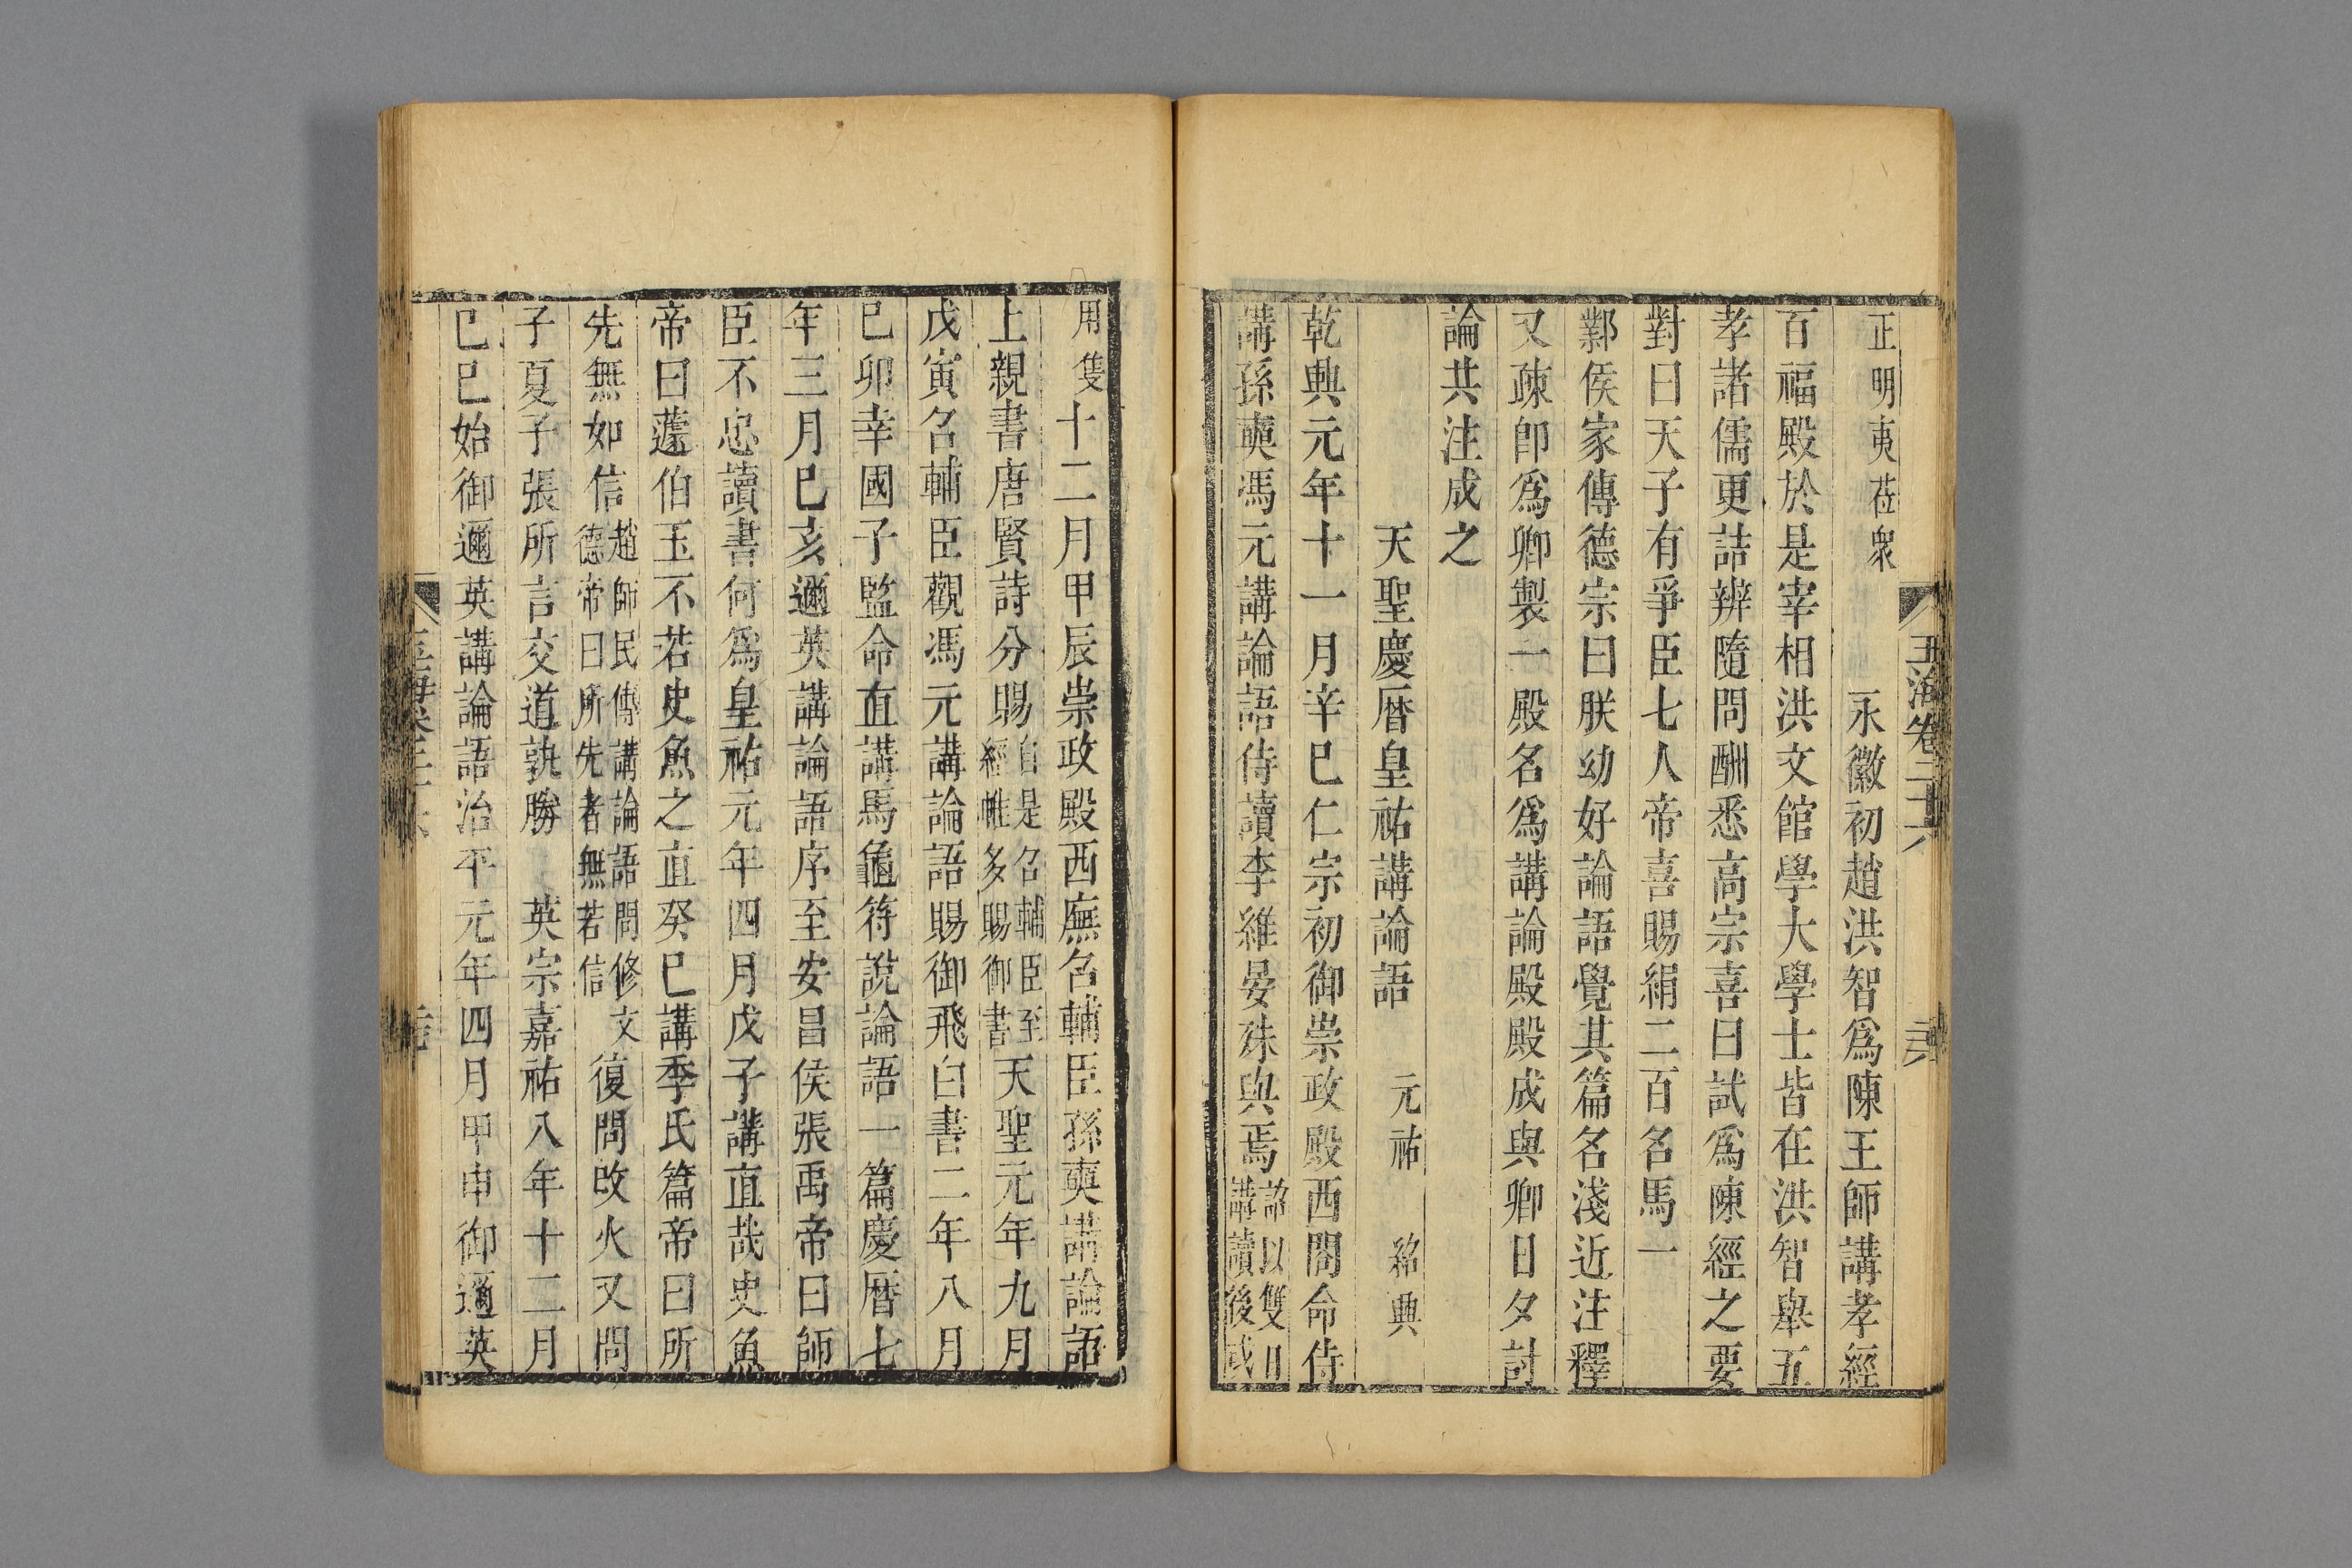 正明夷莅衆　永徽初趙洪智爲陳王師講孝經
百福殿於是宰相洪文館學大學士皆在洪智舉五
孝諸儒更詰辨隨問酬悉高宗喜曰試爲陳經之要
對曰天子有爭臣七人帝喜賜絹二百名馬一
鄴侯家傳德宗曰朕幼好論語覺其篇名淺近注釋
又疎卽爲卿製一殿名爲講論殿殿成與卿日夕討
論共注成之
天聖慶曆皇祐講論語　元祐　紹興
乾興元年十一月辛巳仁宗初御崇政殿西閤命侍
講孫奭馮元講論語侍讀李維晏殊與焉詔以雙日講讀後或
用隻十二月甲辰崇政殿西廡召輔臣孫奭講論語
上親書唐賢詩分賜自是召輔臣至經帷多賜御書天聖元年九月
戊寅召輔臣觀馮元講論語賜御飛白書二年八月
己卯幸國子監命直講馬龜符說論語一篇慶曆七
年三月己亥邇英講論語序至安昌侯張禹帝曰師
臣不忠讀書何爲皇祐元年四月戊子講直哉史魚
帝曰蘧伯玉不若史魚之直癸巳講季氏篇帝曰所
先無如信趙師民傳講論語問修文德帝曰所先者無若信復問改火又問
子夏子張所言交道孰勝　英宗嘉祐八年十二月
己巳始御邇英講論語治平元年四月甲申御邇英
玉海卷三十六